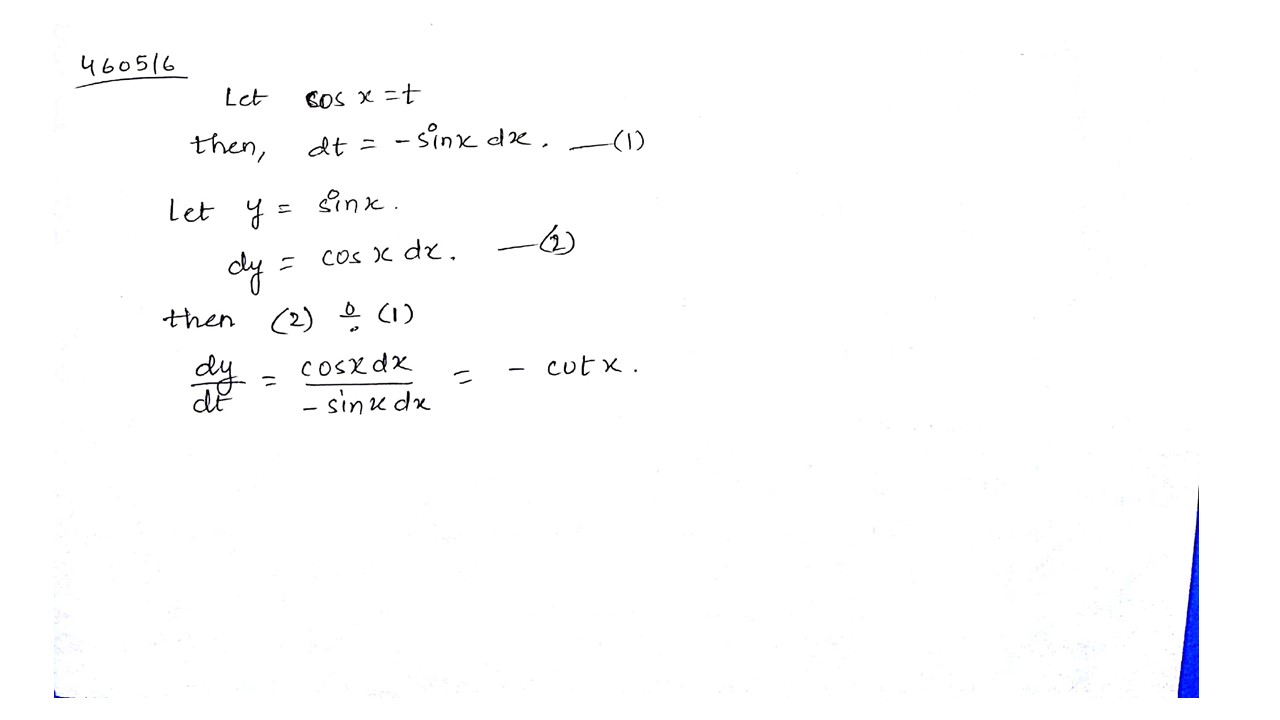 460516
Let cos x = t
then, dt = - sinx dx. —(1)
Let y = sinx.
dy = cos x dx. —(2)
then (2) ÷ (1)
dy/dt = cosx dx / - sinx dx = - cot x.